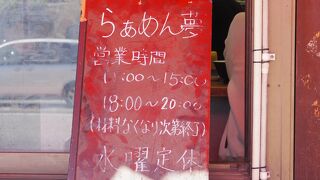 らぁめん夢
営業時間
11:00〜15:00
18:00〜20:00
(材料なくなり次第終了)
水曜定休